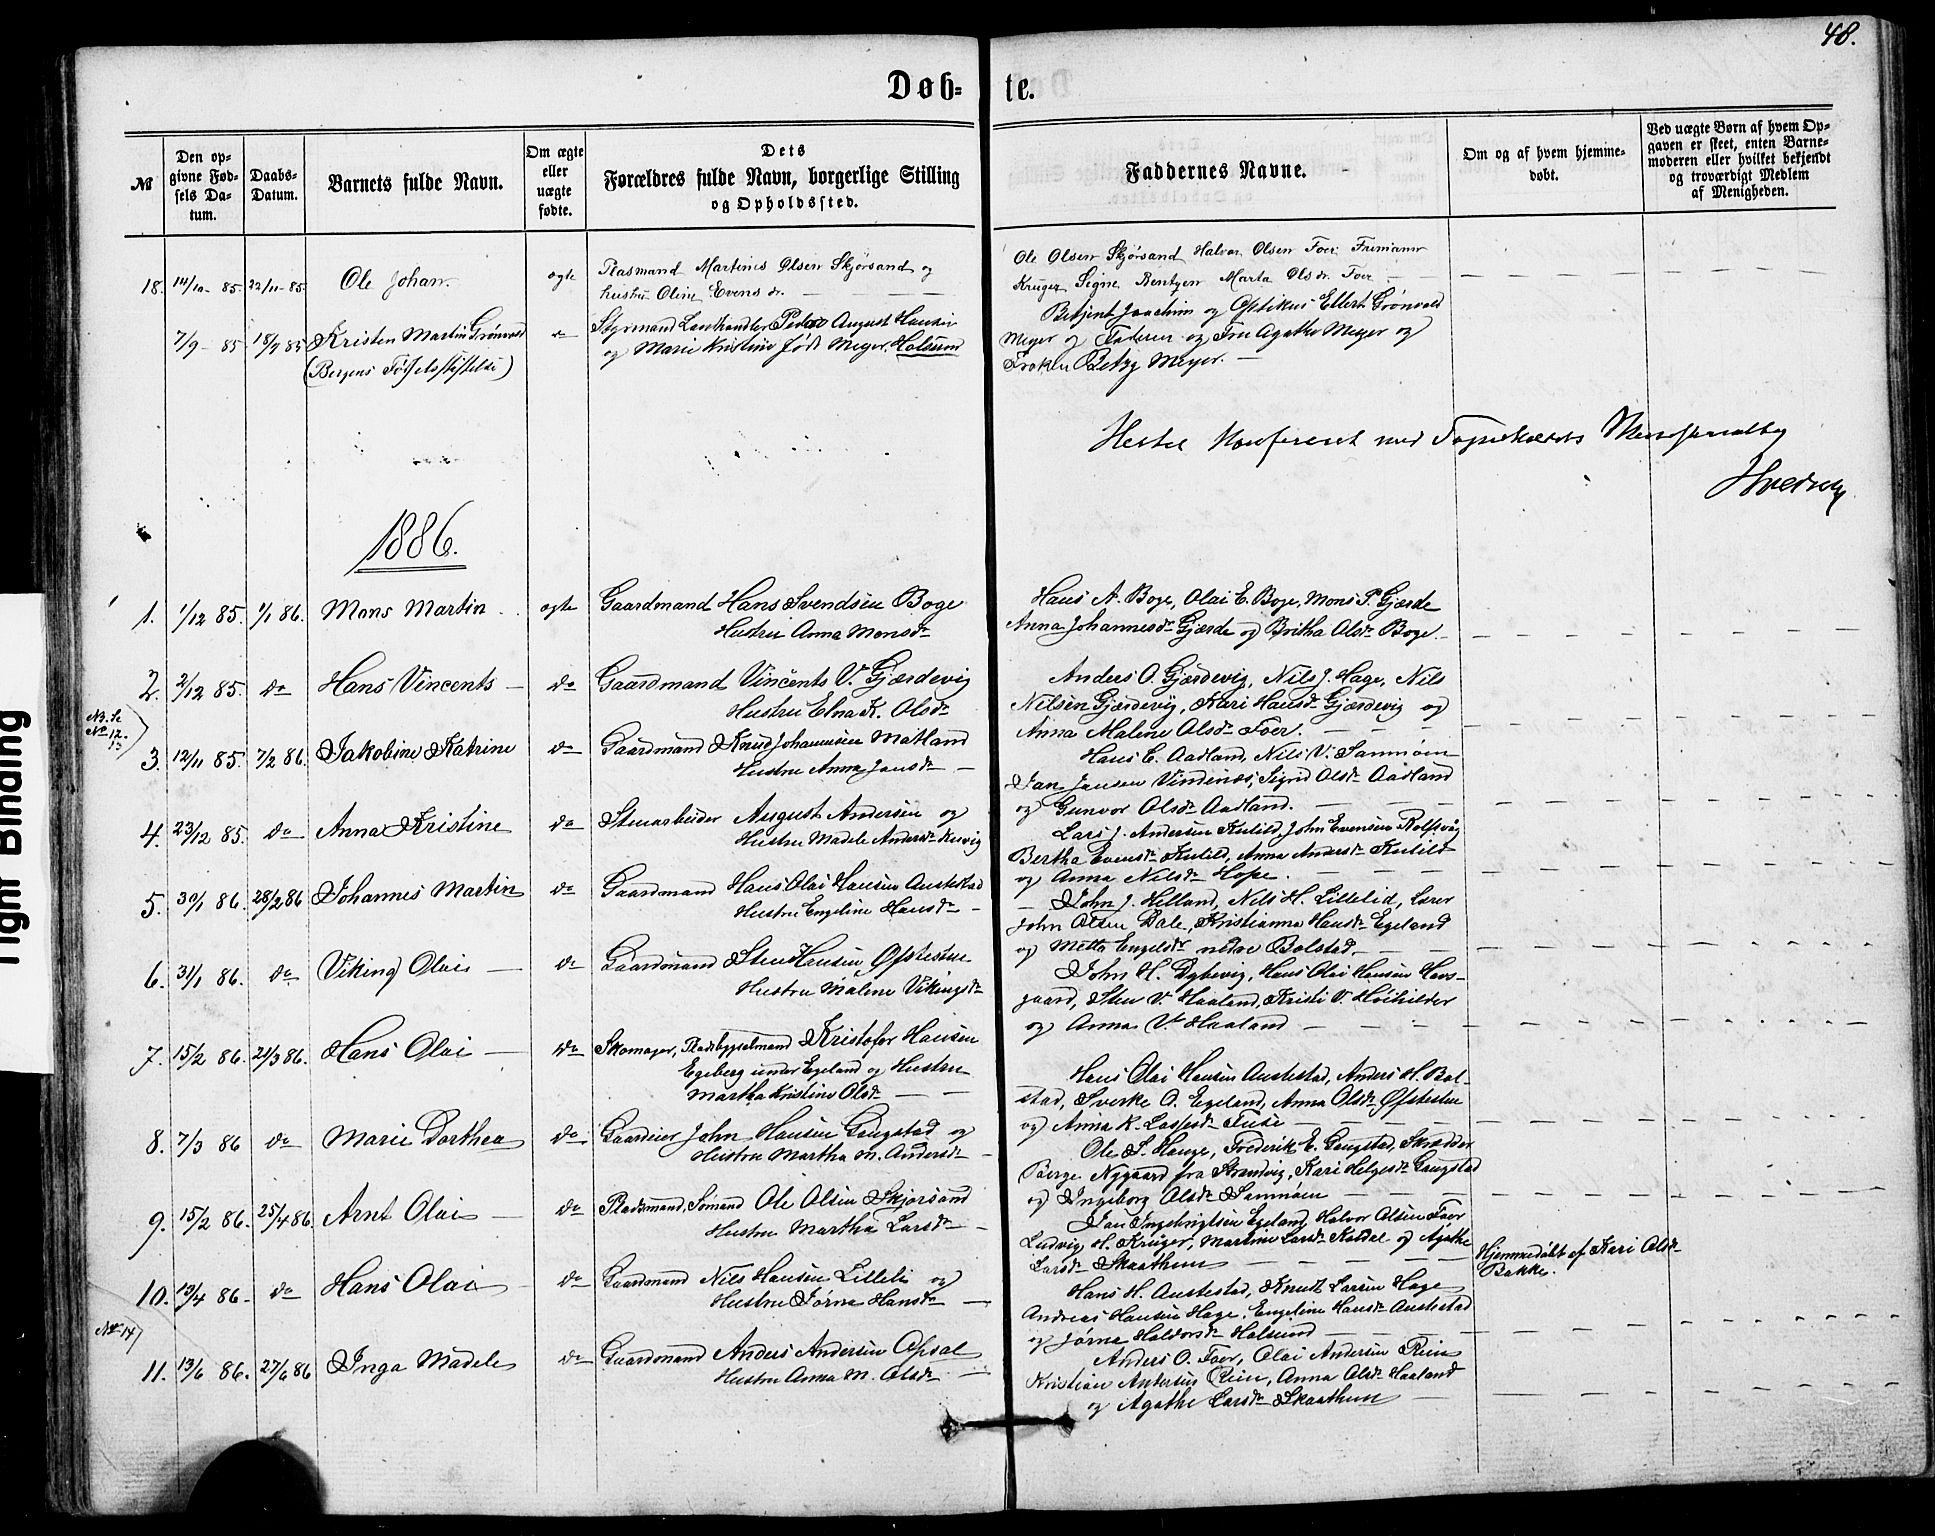 48.
Døb- te.
№
Den op-
givne Fød-
sels Da-
tum.
Daabs-
Datum.
Barnets fulde Navn.
Om ægte
eller
uægte
fødte.
Dets
Forældres fulde Navn, borgerlige Stilling
og Opholdssted.
Faddernes Navne.
Om og af hvem hjemme-
døbt.
Ved uægte Børn af hvem Op-
gaven er skeet, enten Barne-
moderen eller hvilket bekjendt
og troværdigt Medlem
af Menigheden.
18. 14/10 - 85. 22/11 - 85. Ole Johan. ægte
Pladsmand Martines Olsen Skjørsand og
hustru Oline Evensdr.
Ole Olsen Skjørsand Halvor Olsen Foer
Kruger Signe Bentsen Marta Olsdr. Foer
7/9 - 85 18/9 85 Kristen Martin Grønvold
(Bergens Fødselsstiftelse)
Styrmand Landhandler Peder August Hansen
og Marie Kristine født Meyer. Holsund
Betjent Joachim og Optikus Ellert Grønvold
Meyer og Faderen og Fru Agathe Meyer og
Frøken Betzy Meyer.
Hester Konfereret med
1886.
1. 1/12 85. 1/1 86. Mons Martin ægte
Gaardmand Hans Svendsen Boge
Hustru Anna Monsdr
Hans A. Boge, Olai E. Boge, Mons P. Gjærde
Anna Johannesdr Gjærde og Britha Olsdr Boge.
2. 2/12 85. do Hans Vincents do
Gaardmand Vincents V. Gjærdevig
Hustru Elna K. Olsdr
Anders O. Gjærdevig, Nils J. Hage, Nils
Nilsen Gjærdevig, Kari Hansdr Gjærdevig og
Anna Malene Olsdr Foer.
N.B. Se
No 12.
13
3. 12/11 85. 7/2 86. Jakobine Katrine do
Gaardmand Knud Johannesen Matland
Hustru Anna Jansdr
Hans E. Aadland, Nils V. Samnøen
Jan Jansen Vindenes, Sigrid Olsdr Aadland
og Gunvor Olsdr Aadland.
4. 23/12 85. do Anna Kristine do
Stenarbeider August Andersen og
Hustru Madele Andersdr
Lars J. Andersen Kulild, John Evensen Rolfsvåg
Bertha Evensdr Kulild, Anna Andersdr Kulild
og Anna Nilsdr Hope.
5. 30/1 86. 28/2 86 Johannes Martin do
Gaardmand Hans Olai Hansen Austestad
Hustru Engeline Hansdr
John J. Helland, Nils H. Lillelid, Lærer
John Olsen Dale, Kristianna Hansdr Egeland
og Metta Engelsdr nedre Bolstad.
6. 31/1 86. do Viking Olai do
Gaardmand Sten Hansen Øfstestue
Hustru Malene Vikingsdr
John H. Dybevig, Hans Olai Hansen Havs-
gaard, Sten V. Haaland, Kristi V. Høihilder
og Anna V. Haaland
7. 15/2 86. 21/3 86. Hans Olai do
Skomager, Pladsbygselmand Kristofer Hansen
Egeberg under Egeland og Hustru
Martha Kristine Olsdr
Hans Olai Hansen Austestad, Anders H. Bol-
stad, Sverke O. Egeland, Anna Olsdr Øfstestue
og Anna K. Lassesdr Fuse
8. 7/3 86 do Marie Dorthea do
Gaardeier John Hansen Gaugstad og
Hustru Martha M. Andersdr
Ole S. Hauge, Frederik E. Gaugstad, Skrædder
Børge Nygaard fra Strandvig, Kari Helgesdr Gaugstad
og Ingeborg Olsdr Samnøen
9. 15/2 86. 25/4 86. Arnt Olai do
Pladsmand, Sømand Ole Olsen Skjørsand
Hustru Martha Larsdr
Jan Ingebrigtsen Egeland, Halvor Olsen Foer
Ludvig H. Krüger, Martine Larsdr Kaldal og Agathe
Larsdr Skaathun
10. 13/4 86. do Hans Olai do
Gaardmand Nils Hansen Lilleli og
Hustru Jørna Hansdr
Hans H. Austestad, Knut Larsen Hage
Andreas Hansen Hage, Engeline Hansdr Austestad
og Jørna Haldorsdr Holsund
Hjemmedøbt af Kari Olsdr
Bakke.
No 14
11. 13/6 86. 27/6 86 Inga Madele do
Gaardmand Anders Andersen Opsal
Hustru Anna M. Olsdr
Anders O. Foer, Olai Andersen Rein
Kristian Andersen Rein, Anna Olsdr Haaland
og Agathe Larsdr Skaathun
Tight Binding